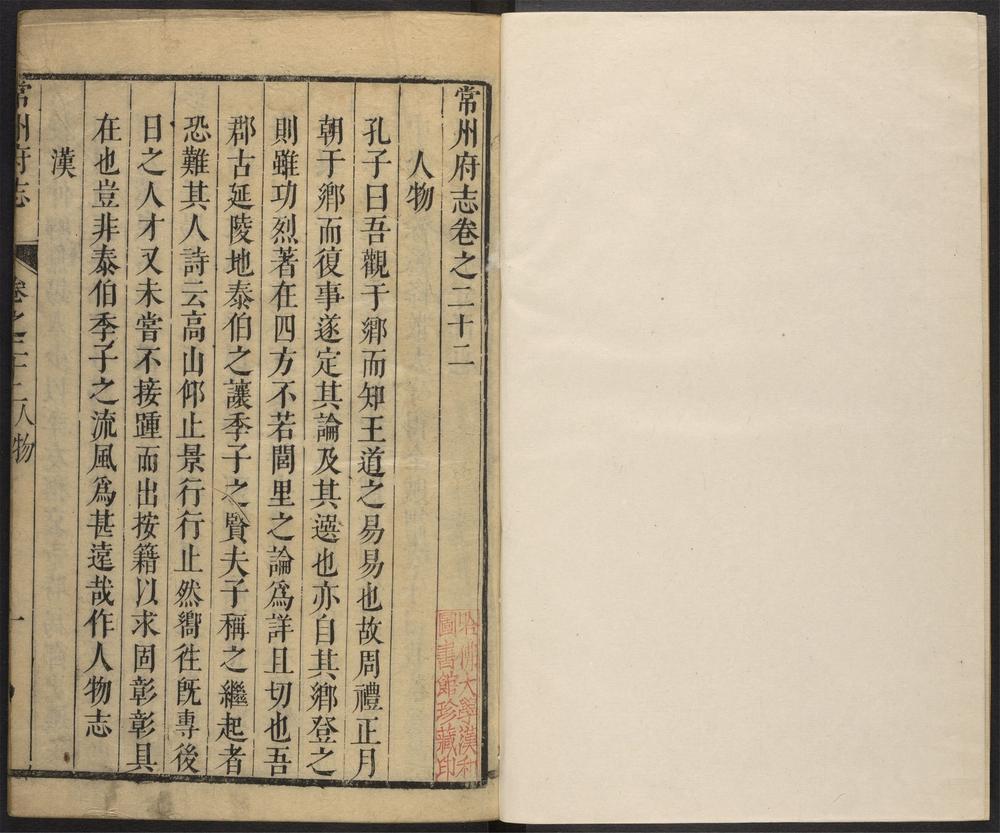 常州府志卷之二十二
人物
孔子曰吾觀于鄉而知王道之易易也故周禮正月
朝于鄉而復事遂定其論及其選也亦自其鄉登之
則雖功烈著在四方不若閭里之論爲詳且切也吾
郡古延陵地泰伯之讓季子之賢夫子稱之繼起者
恐難其人詩云高山仰止景行行止然嚮徃旣專後
日之人才又未嘗不接踵而出按籍以求固彰彰具
在也豈非泰伯季子之流風爲甚遠哉作人物志
漢
常州府志
卷之二十二人物
一
哈佛大學漢和
圖書館珍藏印